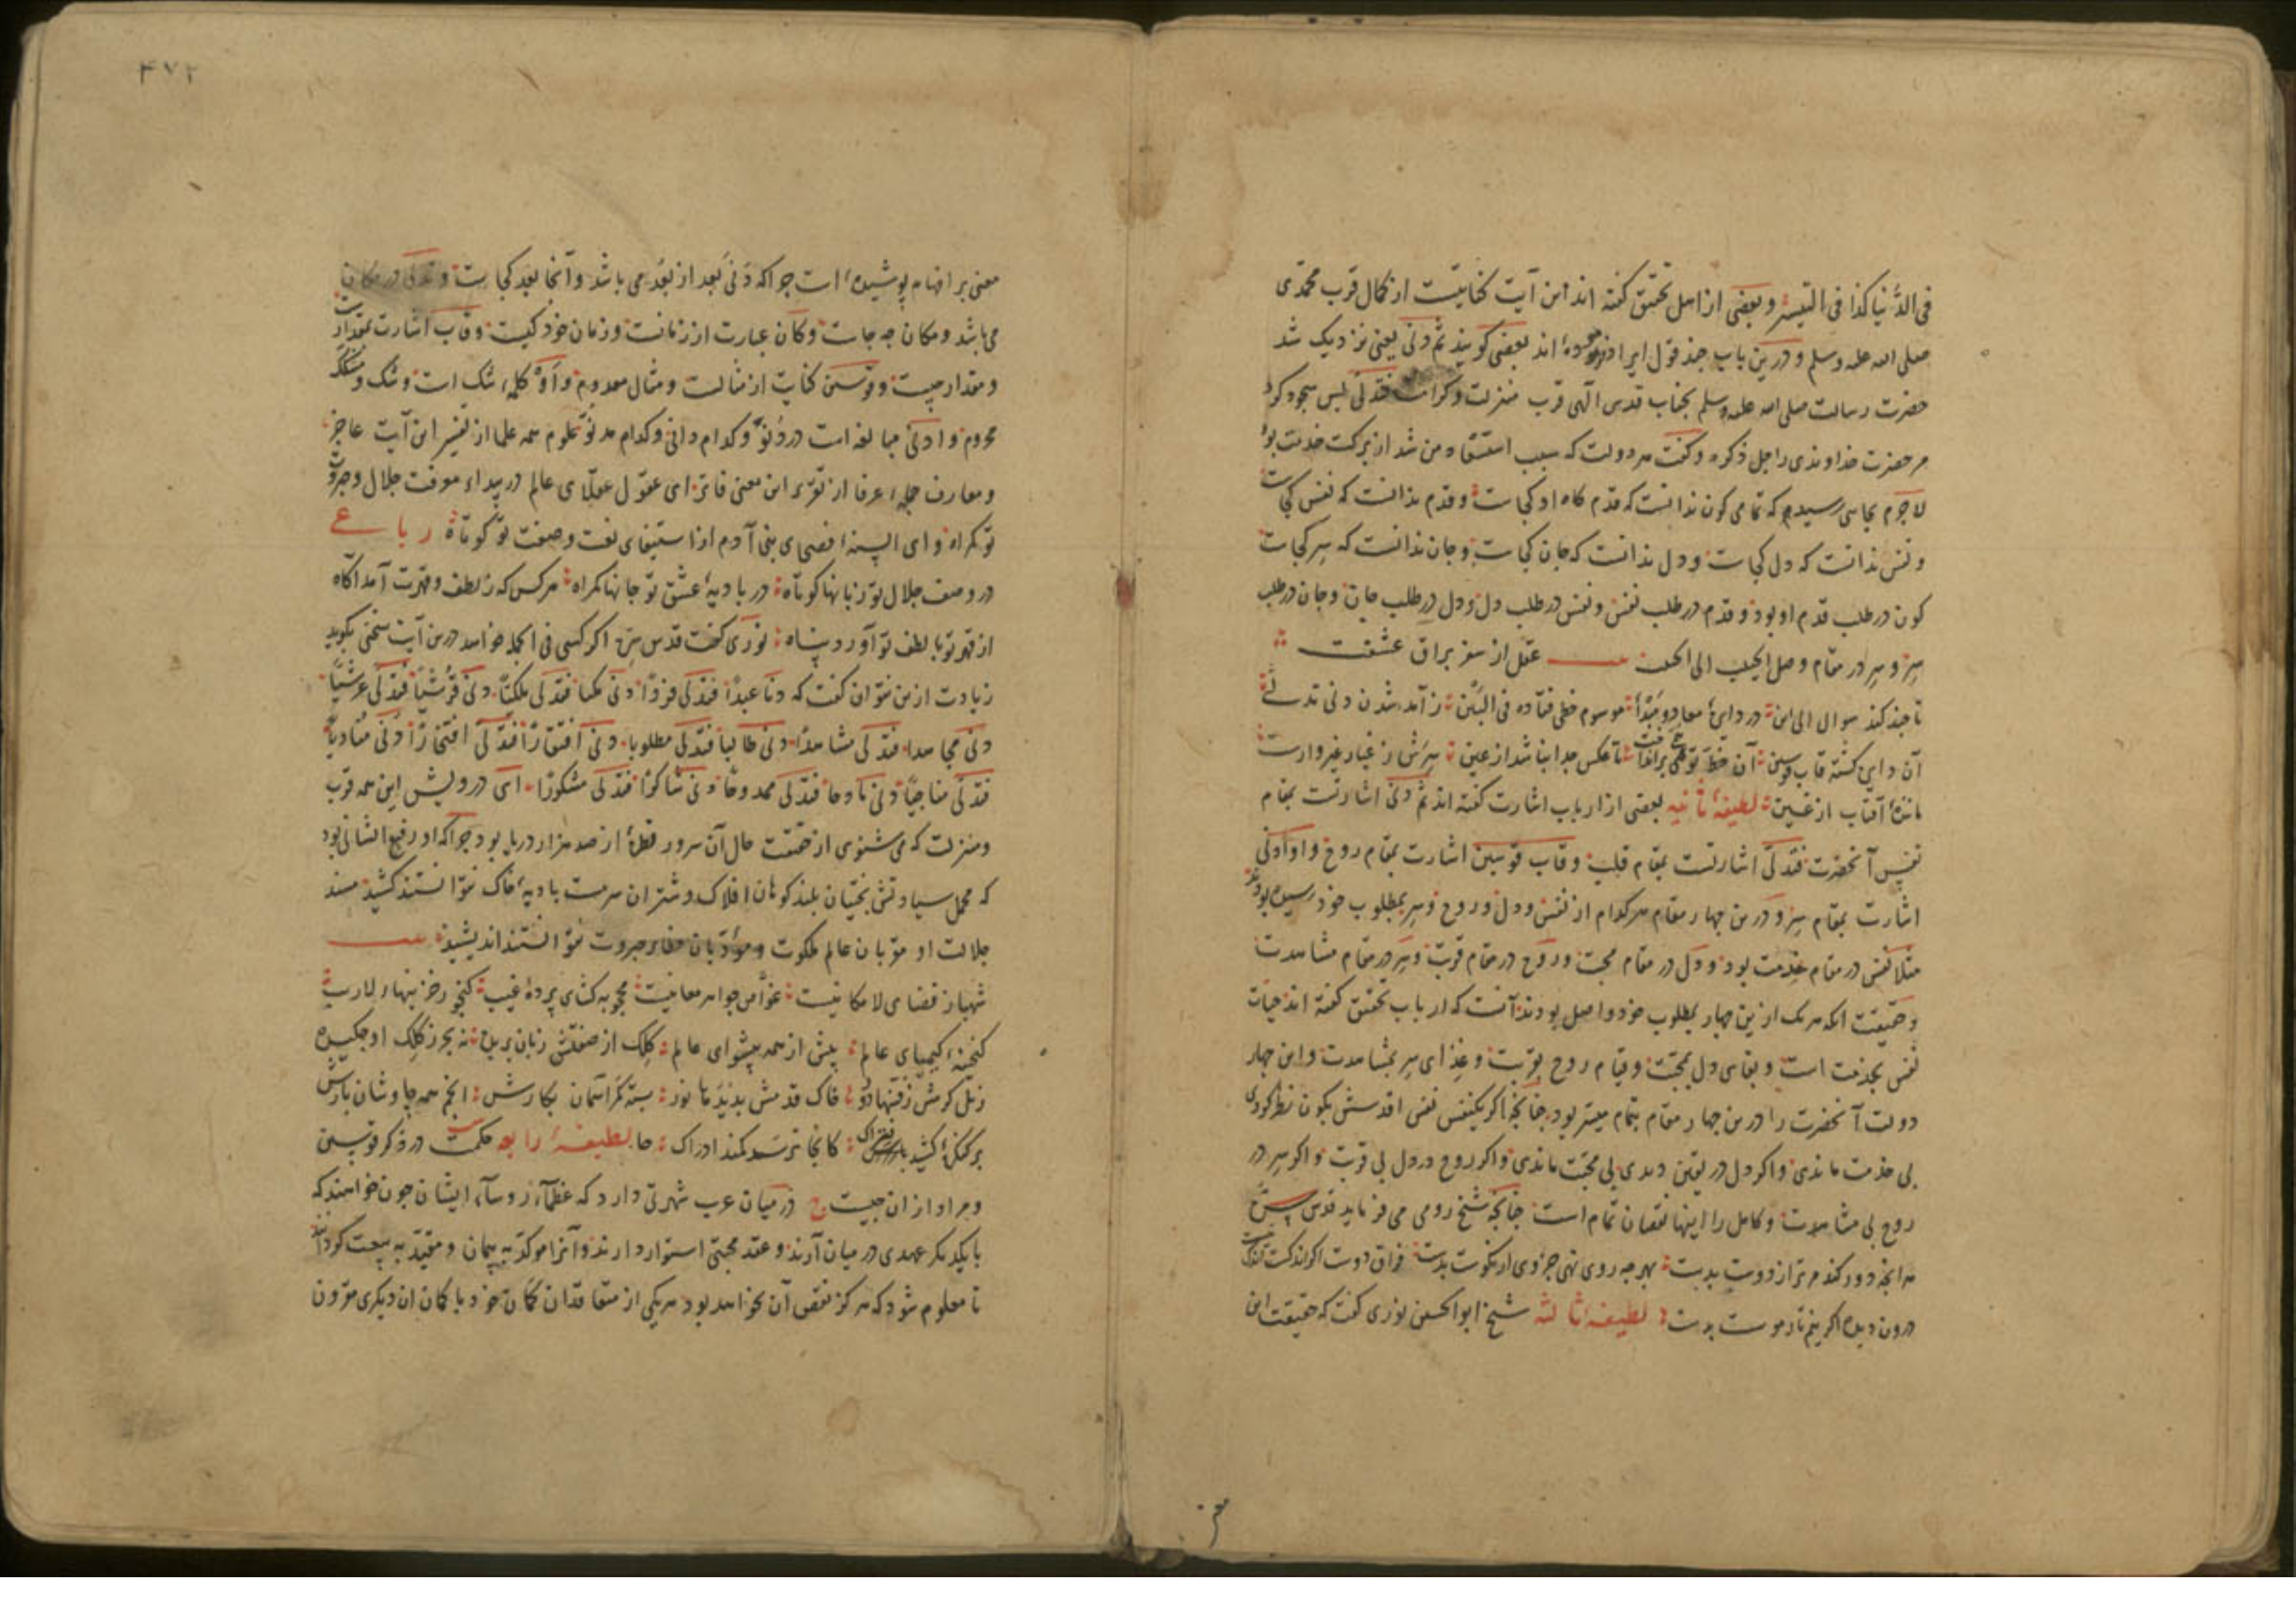 فی الدُّنیا کذا فی التیسیر و بعضی از اهل تحقیق گفته اند این آیت کنایتست از کمال قرب محمّدی
صلی الله علیه وسلم و درین باب چند قول ایراد نموده اند بعضی گویند ثُمَّ دَنی یعنی نزدیک شد
حضرت رسالت صلی الله علیه وسلم بجناب قدس الهی قرب منزلت و کرامت فَتَدَلّی پس سجود کرد
مر حضرت خداوندی را جل ذکره و گفت هر دولت که سبب استسقاء من شد از برکت خدمت بود
لاجرم بجایی رسیدم که تمامی کون ندانست که قدم گاه او کجاست و قدم ندانست که نفس کجاست
و نفس ندانست که دل کجاست و دل ندانست که جان کجاست و جان ندانست که سِر کجاست
کون در طلب قدم او بود و قدم در طلب نفس و نفس در طلب دل و دل در طلب جان و جان در طلب
سِر و سِر در مقام وصل الحبیب الی الحبیب عقل از سفر براق عشقت
تا چند کند سوال الی این در دایرۀ معاد و مَبْدَأ موسوم خطی فتاده فی البَیْن ز آمد شدن دنی تدلّی
آن دایره گشته قاب قوسین آن خط توهمی برافتاد تا عکس جدا نباشد از عین سِرَش ز غبار غیر وارست
مانندۀ آفتاب از غَین لطیفۀ ثانیه بعضی از ارباب اشارت گفته اند ثُمَّ دَنی اشارتست بمقام
نفس آنحضرت فَتَدَلّی اشارتست بمقام قلب و قاب قوسین اشارت بمقام روح و او ادنی
اشارت بمقام سِر و درین چهار مقام هر کدام از نفس و دل و روح و سِر بمطلوب خود رسیده بودند
مثلا نفس در مقام خدمت بود و دل در مقام محبت و روح در مقام قربت و سِر در مقام مشاهدت
و حقیقت انکه هر یک ازین چهار بمطلوب خود واصل بودند آنست که ارباب تحقیق گفته اند حیات
نفس بخدمت است و بقای دل بمحبّت و قیام روح بقربت و غذای سِر بمشاهدت و این چهار
دولت آنحضرت را درین چهار مقام بتمام میسّر بود چنانکه اگر یکنفس نفس اقدسش بکون نظر کردی
بی خدمت ماندی و اگر دل در یقین دیدی بی محبّت ماندی و اگر روح در دل بی قربت و اگر سِر در
روح بی مشاهدت و کامل را اینها نقصان تمام است چنانکه شیخ رومی می فرماید قدس سره
هر انچه دور کند مر ترا از دوست بدست بهر چه روی نهی جز وی ار نکوست بدست فراق دوست اگر اندکست اندک نیست
درون دیده اگر نیم تار موست بدست لطیفۀ ثالثه شیخ ابو الحسین نوری گفت که حقیقت این
معنی
۴۷۲
معنی بر افهام پوشیده است چرا که دَنی بعد از بُعد می باشد و آنجا بعد کجاست و تدلی در مکان
می باشد و مکان چه جاست و کَانَ عبارت از زمانست و زمان خود کیست و قاب اشارت بمقدارست
و مقدار چیست و قوسین کنایت از مثالست و مثال معدوم و اَوْ کلمۀ شک است و شک و مشکک
محروم و اَدْنی مبالغه است در دُنُوّ و کدام دانی و کدام مدنوّ علوم همه علما از تفسیر این آیت عاجز
و معارف جملۀ عرفا از تقریر این معنی فاتر ای عقول عقلای عالم در بیداء معرفت جلال و جبروت
تو گمراه و ای السِنۀ فصحای بنی آدم از استیفای نعت و صفت تو کوتاه رباعی
در وصف جلال تو زبانها کوتاه در بادیۀ عشق تو جانها گمراه هر کس که ز لطف و قهرت آمد آگاه
از قهر تو با لطف تو آورد پناه نوری گفت قدس سره اگر کسی فی الجمله خواهد درین آیت سخنی بگوید
زیادت ازین نتوان گفت که دنا عبدًا فتدلی فردًا دنی مکیا فتدلی ملکیًّا دنی فرشیًّا فتدلی عرشیًّا
دنی مجاهدا فتدلی مشاهدًا دنی طالبا فتدلی مطلوبا دنی افتقارًا فتدلی افتخارًا دنی مُنادیًا
فتدلی مناجیًا دنی مادحا فتدلی ممدوحًا دنی شاکرًا فتدلی مشکورًا ای درویش این همه قرب
و منزلت که می شنوی از حقیقت حال آن سرور قطرۀ از صد هزار دریا بود چرا که او رفیع الشانی بود
که محمل سیادتش بختیان بلند کوهان افلاک و شتران سرمست بادیۀ خاک نتوانستند کشید مسند
جلالت او مقربان عالم ملکوت و مؤدّبان حظایر جبروت نتوانستند اندیشید
شهباز فضای لامکانیست غوّاص جواهر معانیست محجوبه گشای پردۀ غیب گنجور خزینهاء لاریب
گنجینۀ کیمیای عالم پیش از همه پیشوای عالم کلک از صفتش زبان بریده نه بحر ز کلک او چکیده
خاک قدمش بدیدۀ ما نور بسته کمر آسمان بکارش انجم همه چاوشان بارش
بر کنگرۀ کشید فتراک کانجا نرسد کمند ادراک لطیفۀ رابعه حکمت در ذکر قوسین
و مراد از ان چیست ج در میان عرب شهرتی دارد که عظمآء و رؤسآء ایشان چون خواهند که
با یکدیگر عهدی در میان آرند و عقد محبتی استوار دارند و آنرا موکّد به پیمان و مقیّد به بیعت گردانند
تا معلوم شود که هرگز نقض آن نخواهد بود هر یکی از متعاقدان کمان خود با کمان ان دیگری مقرون